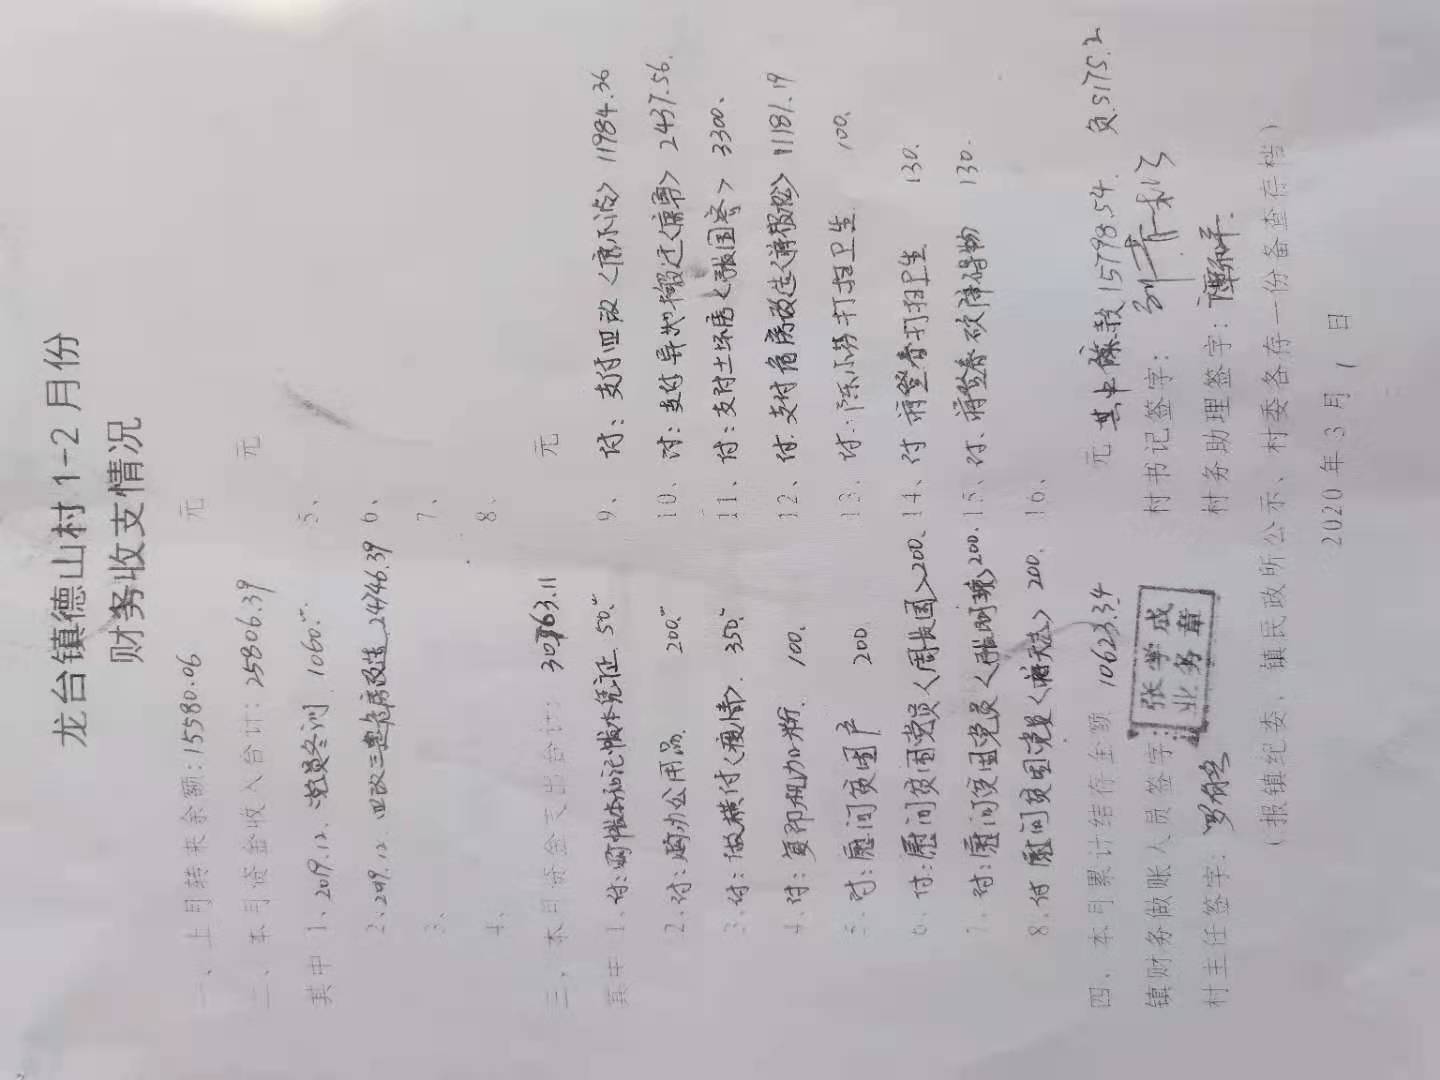 龙台镇德山村1-2月份
财务收支情况
一、上月转来余额:15580.06 元
二、本月资金收入合计:25806.39 元
其中 1、2019.12、党员冬训 1060. 5、
2、2019.12 四改三建危房改造 24746.39 6、
3、 7、
4、 8、
三、本月资金支出合计: 30763.11 元
其中 1、付:购帐本和记帐凭证 50. 9、付:支付四改〈 〉11984.36
2、付:购办公用品 200. 10、付:支付异地搬迁〈 〉2437.56.
3、付:做横付(疫情) 350. 11、付:支付土坯房〈张国容〉3300、
4、付:复印机加粉、 100. 12、付:支付危房改造〈蒋银松〉11181.19
5、付:慰问贫困户 200 13、付:陈小芬打扫卫生 100、
6、付:慰问贫困党员〈周长国〉200. 14、付 蒋登春打扫卫生 130.
7、付:慰问贫困党员〈 〉200. 15、付、蒋登春砍障碍物 130.
8、付 慰问贫困党员〈 〉200. 16、
四、本月累计结存金额 10623.34 元 其中 15798.54. 负.5175.2
镇财务做账人员签字: 张学成 业务章 村书记签字:
村主任签字: 村务助理签字:
(报镇纪委、镇民政所公示、村委各存一份备查存档)
2020年3月1日